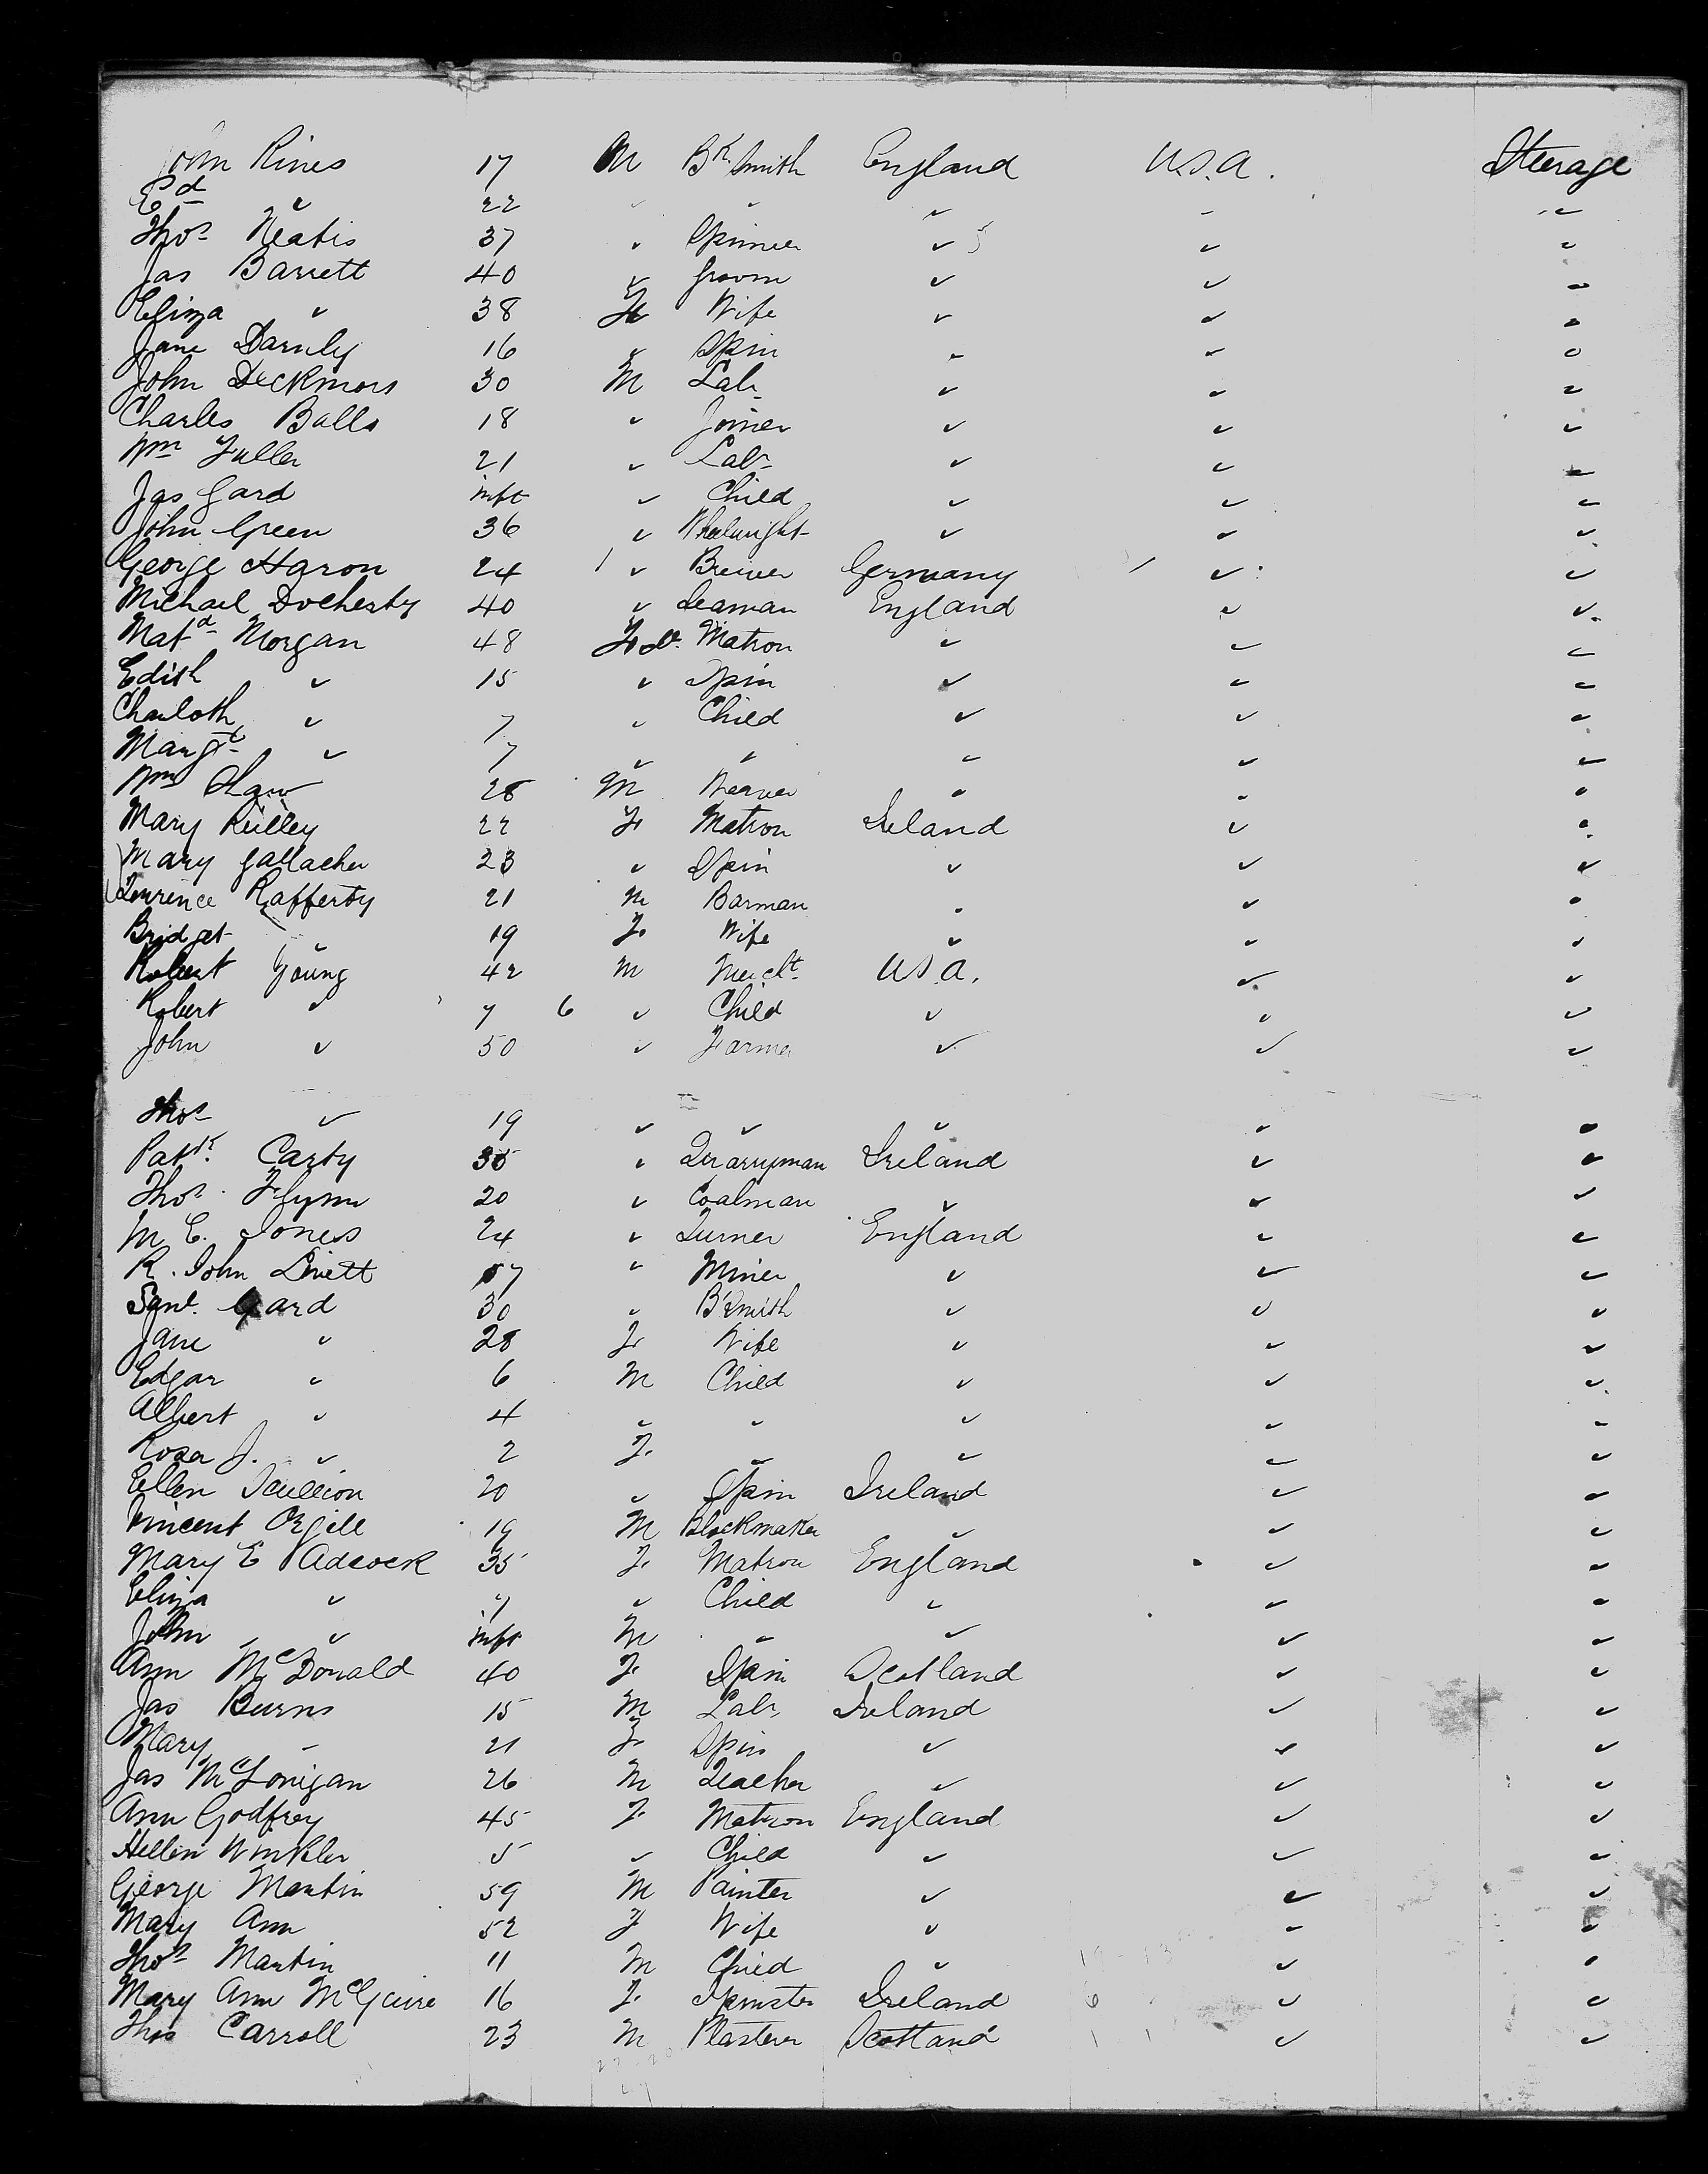 John Rines 17 M Bk Smith England U.S.A. Steerage
Ed " 22 " " " " "
Thos Neatis 37 " Spinner " " "
Jas Barrett 40 " Groom " " "
Eliza " 38 F Wife " " "
Jane Darnly 16 " Spin " " "
John Deckmors 30 M Lab " " "
Charles Balls 18 " Joiner " " "
Wm Fuller 21 " Labr " " "
Jas Gard inft " Child " " "
John Green 36 " Wheelwright " " "
George Haron 24 " Brewer Germany " "
Michael Docherty 40 " Seaman England " "
Matd Morgan 48 F Matron " " "
Edith " 15 " Spin " " "
Charloth " 7 " Child " " "
Margt " 7 " " " " "
Wm Shaw 28 M Weaver " " "
Mary Reilley 22 F Matron Ireland " "
Mary Gallacher 23 " Spin " " "
Lawrence Rafferty 21 M Barman " " "
Bridget " 19 F Wife " " "
Robert Young 42 M Mercht U.S.A. " "
Robert " 7 6 " Child " " "
John " 50 " Farmer " " "
Thos " 19 " " " " "
Patk Carty 35 " Quarryman Ireland " "
Thos Flynn 20 " Coalman " " "
M. E. Jones 24 " Turner England " "
R. John Livett 57 " Miner " " "
Saml. Gard 30 " B'Smith " " "
Jane " 28 F Wife " " "
Edgar " 6 M Child " " "
Albert " 4 " " " " "
Rosa J. " 2 F. " " " "
Ellen Scullion 20 " Spin Ireland " "
Vincent Orgill 19 M Blockmaker " " "
Mary E Adcock 35 F. Matron England " "
Eliza " 7 " Child " " "
John " inft M " " " "
Ann McDonald 40 F. Spin Scotland " "
Jas Burns 15 M Labr Ireland " "
Mary " 21 F Spin " " "
Jas McLonigan 26 M Teacher " " "
Ann Godfrey 45 F. Matron England " "
Hellen Winkler 5 " Child " " "
George Martin 59 M Painter " " "
Mary Ann 52 F Wife " " "
Thos Martin 11 M Child " " "
Mary Ann McGuire 16 F. Spinster Ireland " "
Thos Carroll 23 M Plasterer Scotland " "